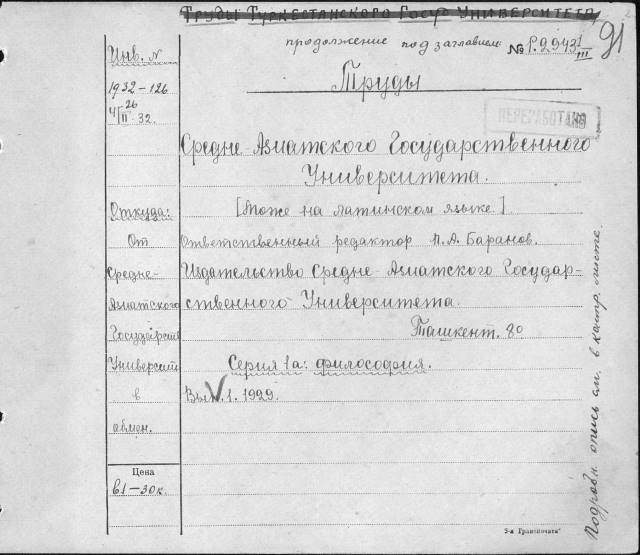 Труды Туркестанского Госуд Университета
91
продолжение под заглавием: № P.2943 1/III
Инв. N
Труды
1932-126
26
4/II 32.
ПЕРЕРАБОТАНО
Средне-Азиатского Государственного
Университета.
Откуда:
[Тоже на латинском языке.]
От
Ответственный редактор П.А. Баранов.
Средне-
Издательство Средне-Азиатского Государ-
Азиатского
ственного Университета.
Государств
Ташкент. 8°
Университ
Серия 1а: философия.
в
Вып. 1. 1929.
обмен.
Цена
в1-30к.
Подробн. опись см. в катр. листке.
3-я Гранпечать